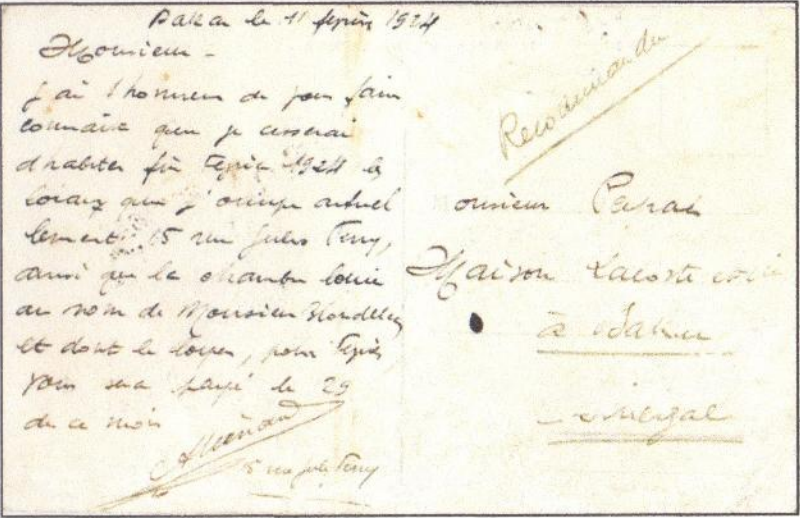 Dakar le 11 février 1924
Monsieur -
J'ai l'honneur de vous faire
connaître que je cesserai
d'habiter fin février 1924 les
locaux que j'occupe actuel
lement 15 rue Jules Ferry,
ainsi que la chambre louée
au nom de Monsieur
et dont le loyer, pour février
vous sera payé le 29
de ce mois
15 rue Jules Ferry
Recommandée
Monsieur
Maison Lacoste
à Dakar
Sénégal